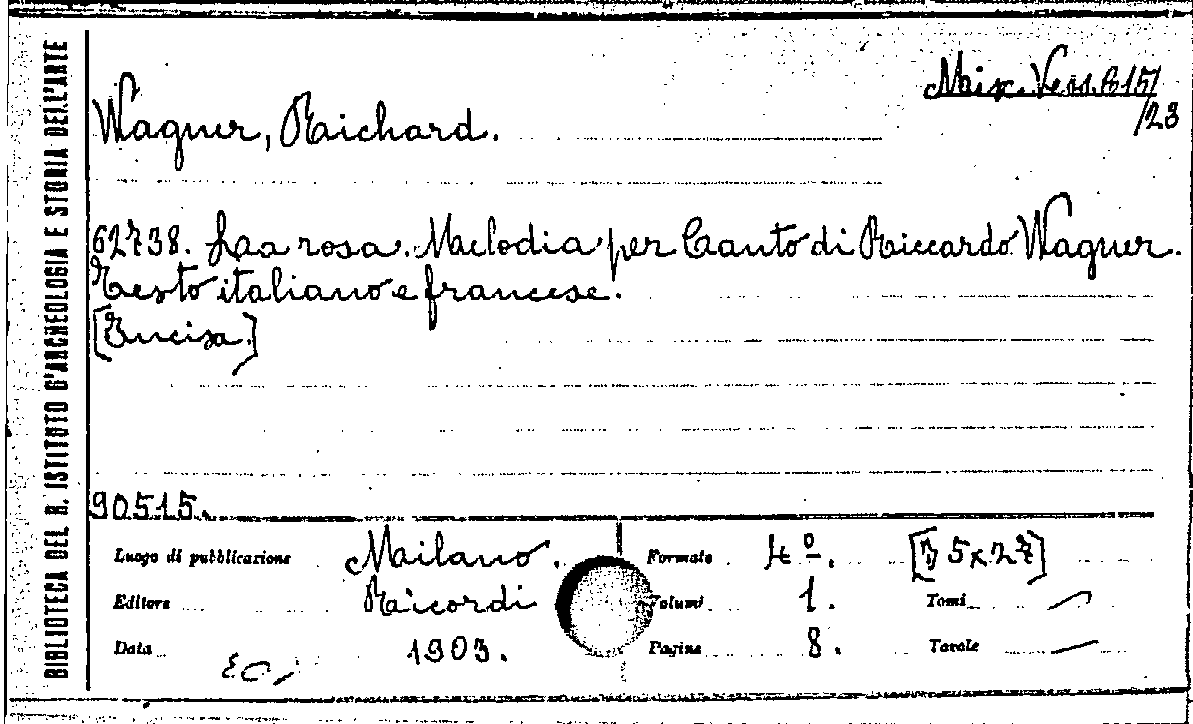 BIBLIOTECA DEL R. ISTITUTO D'ARCHEOLOGIA E STORIA DELL'ARTE
Misc. Vess. B 15/
/23
Wagner, Richard.
62738. La rosa. Melodia per Canto di Riccardo Wagner.
Testo italiano e francese.
[Incisa.]
90515.
Luogo di pubblicazione Milano. Formato 4º. [35x27]
Editore Ricordi Volumi 1. Tomi —
Data 1903. Pagine 8. Tavole —